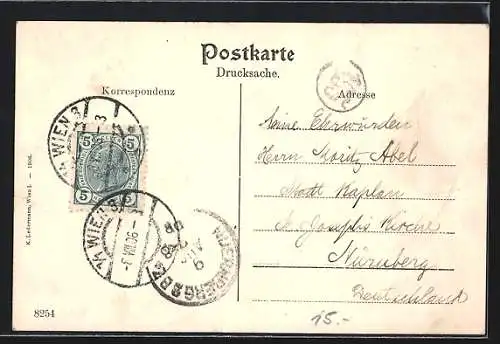 Postkarte
Drucksache.
Korrespondenz
Adresse
5 5
5 5
WIEN 3
WIEN 3
NUERNBERG
Seine Ehrwürden
Herrn Moritz Abel
Stadt Kaplan
St. Josephs Kirche
Nürnberg
Deutschland
K. Ledermann, Wien I. – 1906.
8254
15.-